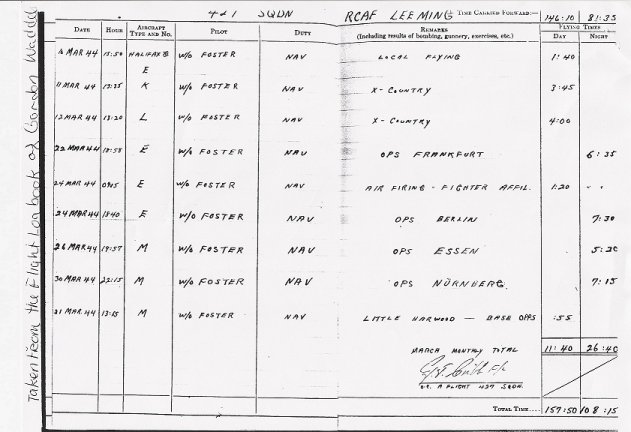 421 SQDN RCAF LEEMING TIME CARRIED FORWARD:— 146:10 81:35
DATE HOUR AIRCRAFT TYPE AND NO. PILOT DUTY REMARKS (Including results of bombing, gunnery, exercises, etc.) FLYING TIMES DAY NIGHT
MAR 44 15:50 HALIFAX E W/O FOSTER NAV LOCAL FLYING 1:40
11 MAR 44 13:35 K W/O FOSTER NAV X-COUNTRY 3:45
12 MAR 44 13:20 L W/O FOSTER NAV X-COUNTRY 4:00
22 MAR 44 18:58 E W/O FOSTER NAV OPS FRANKFURT 6:35
24 MAR 44 0905 E W/O FOSTER NAV AIR FIRING - FIGHTER AFFIL. 1:20 " "
24 MAR 44 1840 E W/O FOSTER NAV OPS BERLIN 7:30
26 MAR 44 19:57 M W/O FOSTER NAV OPS ESSEN 5:20
30 MAR 44 22:15 M W/O FOSTER NAV OPS NÜRNBERG 7:15
31 MAR 44 13:15 M W/O FOSTER NAV LITTLE HARWOOD — BASE OPPS :55
MARCH MONTHLY TOTAL 11:40 26:40
O.C. A FLIGHT 427 SQDN.
TOTAL TIME.... 157:50 108:15
Taken From the Flight Logbook of Gordon